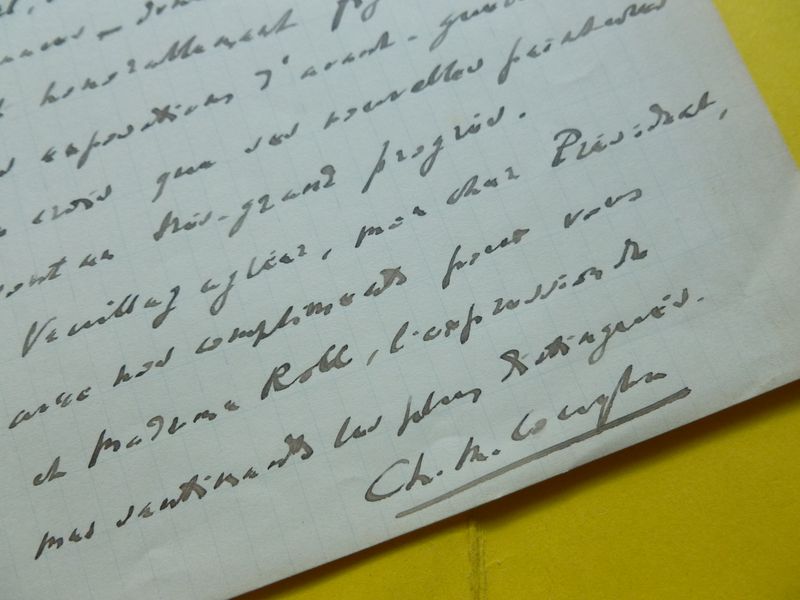 honorablement
expositions d'avant-guerre
crois que ses nouvelles peintures
sont en très-grand progrès.
Veuillez agréer, mon cher Président,
avec nos compliments pour vous
et madame Roll, l'expression de
mes sentiments les plus distingués.
Ch. M.